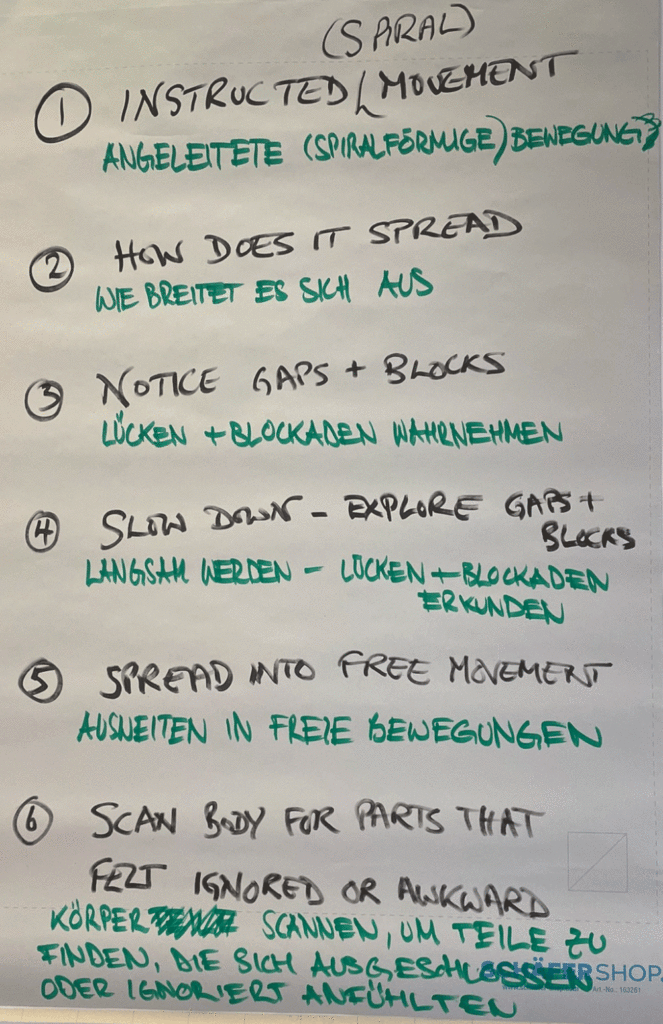 (SPIRAL)
① INSTRUCTED MOVEMENT
ANGELEITETE (SPIRALFÖRMIGE) BEWEGUNG
② HOW DOES IT SPREAD
WIE BREITET ES SICH AUS
③ NOTICE GAPS + BLOCKS
LÜCKEN + BLOCKADEN WAHRNEHMEN
④ SLOW DOWN – EXPLORE GAPS +
BLOCKS
LANGSAM WERDEN – LÜCKEN + BLOCKADEN
ERKUNDEN
⑤ SPREAD INTO FREE MOVEMENT
AUSWEITEN IN FREIE BEWEGUNGEN
⑥ SCAN BODY FOR PARTS THAT
FELT IGNORED OR AWKWARD
KÖRPER SCANNEN, UM TEILE ZU
FINDEN, DIE SICH AUSGESCHLOSSEN
ODER IGNORIERT ANFÜHLTEN
SCHÄFER SHOP.
Art.-No.: 163261